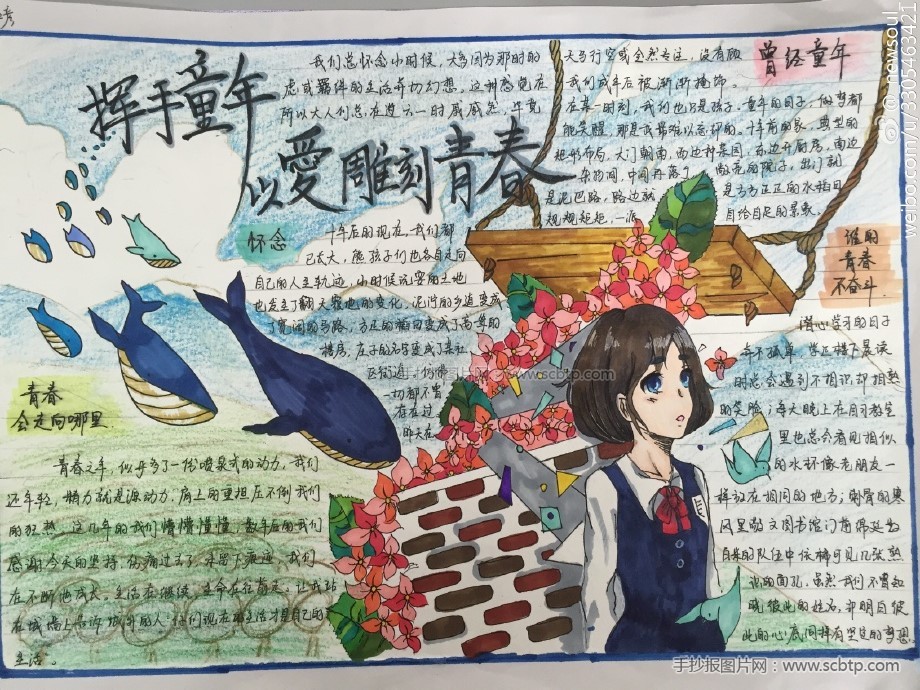 挥手童年
以愛雕刻青春
我们总怀念小时候，大多因为那时的
虑或羁绊的生活并切幻想，这种感觉在
所以大人们总在过六一时感感然，毕竟
天马行空或全然专注，没有顾
我们成年后被渐渐掩饰。
在某一时刻，我们也只是孩子。童年的日子，做梦都
能笑醒，那是我最难以忘却的。十年前的家，典型的
矩形布局，大门朝南，西边种菜园，东边开厨房，南边
杂物间，中间开落了
敞亮的院子，出门到
是泥巴路，路边就
是方方正正的水稻田
规规矩矩，一派
自给自足的景象。
曾经童年
怀念
十年后的现在，我们都
已长大，熊孩子们也各自走向
自己的人生轨迹，小时候玩耍的土地
也发生了翻天覆地的变化，泥泞的乡道变成
了宽阔的马路，方正的稻田变成了高耸的
楼房，庄子的名字变成了某社
区街道，仿佛
一切都不曾
存在过
昨天在
谁的
青春
不奋斗
潜心学习的日子
并不孤单，学区楼下晨读
时总会遇到不相识却相熟
的笑脸；每天晚上在自习教室
里也总会看见相似
的水杯像老朋友一
样放在相同的地方；刺骨的寒
风里敬文图书馆门前绵延为
百米的队伍中依稀可见几张熟
悉的面孔，虽然我们不曾知
晓彼此的姓名，却明白彼
此的心底同样有坚定的梦想
青春
会走向哪里
青春之年，似乎多了一份喷泉式的动力，我们
还年轻，精力就是源动力，肩上的重担压不倒我们
的狂热。这几年的我们懵懵懂懂，数年后的我们
感谢今天的坚持，伤痛过去了，未留下痕迹，我们
在不断地成长。生活在继续，生命在往前走，让我站
在城墙上告诉城外的人：他们现在的生活才是自己的
生活。
手抄报图片网 - www.scbtp.com
© nowsoul
weibo.com/u/3305463421
手抄报图片网 www.scbtp.com